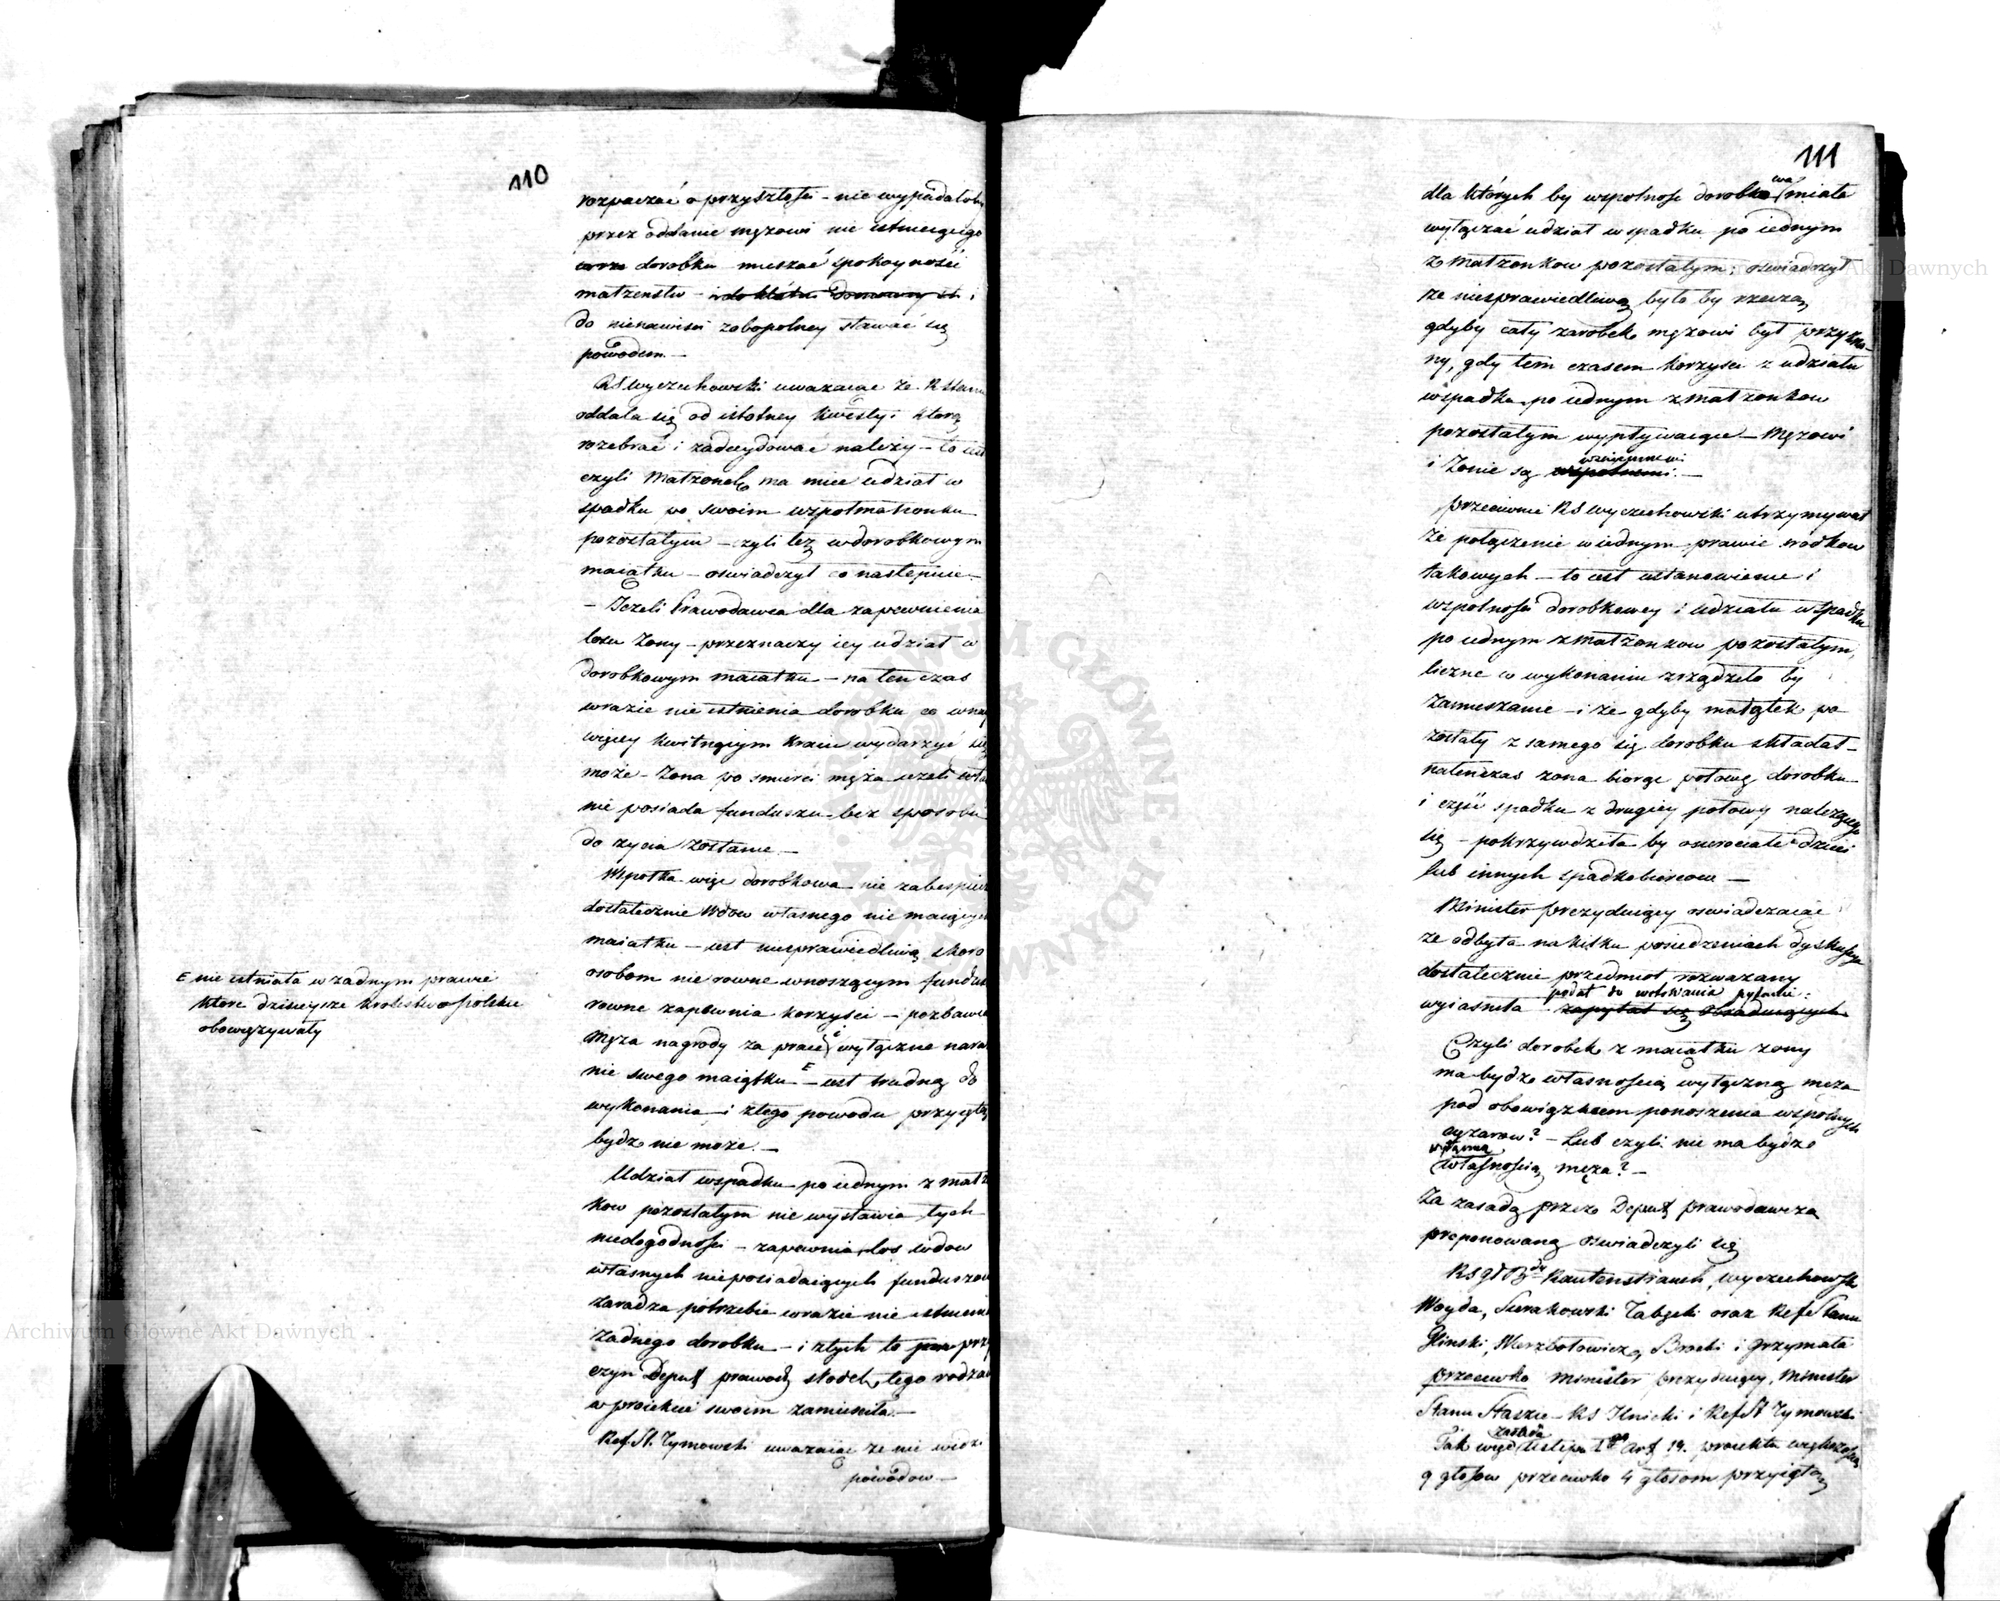 110
rozpaczać o przyszłości – nie wypadałoby
przez oddanie mężowi nie istnieiącego
dorobku mieszać spokoyność
małżeństw – i do kłótni domowych i
do nienawiści zobopolney stawać się
powodem. –
RS Wyczechowski uważaiąc że R Stanu
oddala się od istotney kwestyi którą
rozebrać i zadecydować należy – to iest
czyli Małżonek ma mieć udział w
spadku po swoim współmałżonku
pozostałym – czyli też w dorobkowym
maiątku – oświadczył co następuie –
– Jeżeli Prawodawca dla zapewnienia
losu żony – przeznaczy iey udział w
dorobkowym maiątku – na ten czas
w razie nie istnienia dorobku co w nay
więcey kwitnącym kraiu wydarzyć się
może – żona po śmierci męża ieżeli
nie posiada funduszu bez sposobu
do życia zostanie –
Wspólka więc dorobkowa nie zabespiecza
dostatecznie Wdów własnego nie maiących
maiątku – iest niesprawiedliwą skoro
osobom nie równe wnoszącym fundusze
równe zapewnia korzyści – pozbawia
Męża nagrody za pracę wyłączne
nie swego maiątku E – iest trudną do
wykonania i z tego powodu przyiętą
bydź nie może. –
Udział w spadku po iednym z małżon
ków pozostałym nie wystawia tych
niedogodności – zapewnia los wdów
własnych nieposiadaiących funduszów
zaradza potrzebie w razie nie istnienia
żadnego dorobku – i z tych to przy
czyn Deput prawod środek tego rodzaiu
w proiekcie swoim zamieściła –
Ref. St. Tymowski uważaiąc że nie widzi
powodów –
E nie istniała w żadnym prawie
które dzisieysze Królestwo Polskie
obowiązywały
111
dla których by wspólność dorobkowa miała
wyłączać udział w spadku po iednym
z Małżonków pozostałym, oświadczył
że niesprawiedliwą było by rzeczą
gdyby cały zarobek mężowi był przyzna-
ny, gdy tem czasem korzyści z udziału
w spadku po iednym z małżonków
pozostałym wypływaiące – Mężowi
i Żonie są wspólnemi wzaiemnemi. –
przeciwnie RS Wyczechowski utrzymywał
że połączenie w iednym prawie środków
takowych – to iest ustanowienie i
wspólności dorobkowey i udziału w spadku
po iednym z małżonków pozostałym,
liczne w wykonaniu zrządziło by
zamieszanie – i że gdyby maiątek po
zostały z samego się dorobku składał –
natenczas żona biorąc połowę dorobku
i część spadku z drugiey połowy należącego
się – pokrzywdziła by osierociałe dzieci
lub innych spadkobierców –
Minister prezyduiący oświadczaiąc
że odbyta na kilku posiedzeniach dyskusya
dostatecznie przedmiot rozważany
wyiaśniła zapytał się obraduiących podał do wotowania pytanie:
Czyli dorobek z maiątku żony
ma bydź własnością wyłączną męża
pod obowiązkiem ponoszenia wspólnych
ciężarów? – Lub czyli nie ma bydź
wyłączną
własnością męża? –
Za zasadą przez Deput prawodawczą
proponowaną oświadczyli się
RS Rautenstrauch, Wyczechowski
Woyda, Sierakowski oraz Ref Stanu
Gliński, Wierzbołowicz, Brocki i Grzymała
przeciwko Minister prezyduiący, Minister
Stanu Staszic – RS Ilnicki i Ref St Tymowski
Tak więc zasada Ustępu 1go Art 19. proiektu większością
9 głosów przeciwko 4 głosom przyiętą